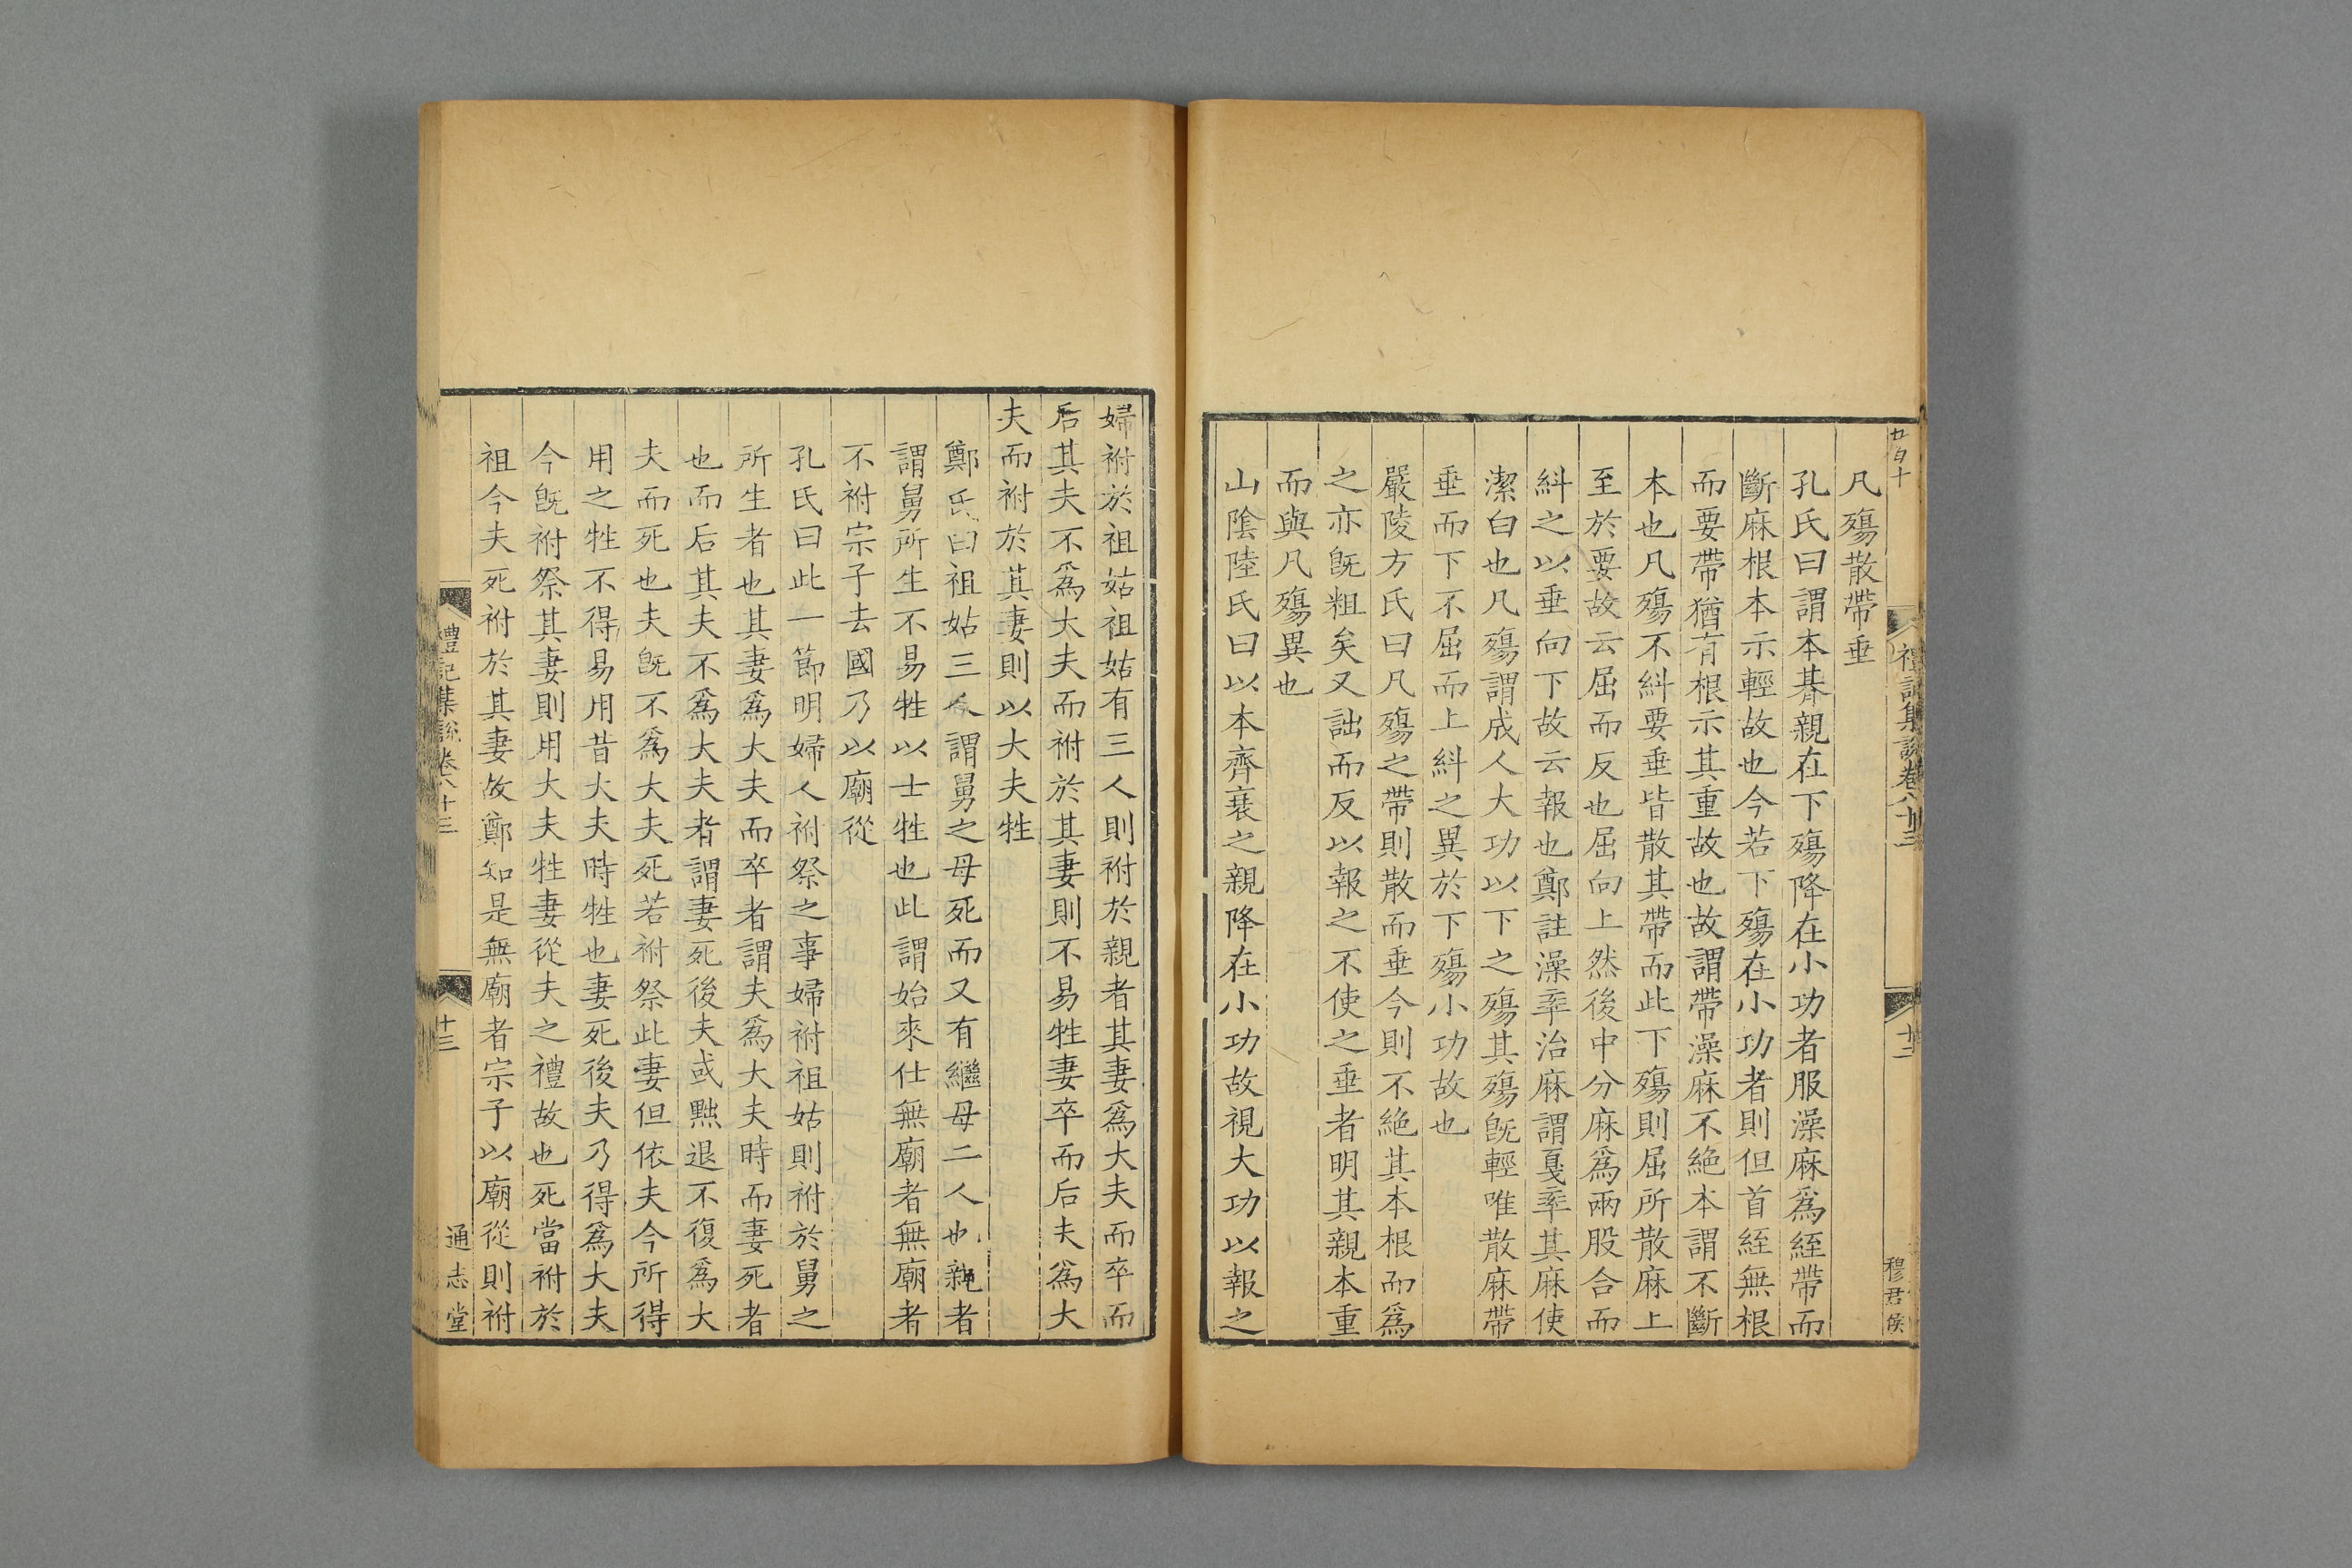 禮記集說卷八十三
十二
穆君侯
凡殤散帶垂
孔氏曰謂本朞親在下殤降在小功者服澡麻爲絰帶而
斷麻根本示輕故也今若下殤在小功者則但首絰無根
而要帶猶有根示其重故也故謂帶澡麻不絶本謂不斷
本也凡殤不糾要垂皆散其帶而此下殤則屈所散麻上
至於要故云屈而反也屈向上然後中分麻爲兩股合而
糾之以垂向下故云報也鄭註澡率治麻謂戞率其麻使
潔白也凡殤謂成人大功以下之殤其殤旣輕唯散麻帶
垂而下不屈而上糾之異於下殤小功故也
嚴陵方氏曰凡殤之帶則散而垂今則不絶其本根而爲
之亦旣粗矣又詘而反以報之不使之垂者明其親本重
而與凡殤異也
山陰陸氏曰以本齊衰之親降在小功故視大功以報之
婦祔於祖姑祖姑有三人則祔於親者其妻爲大夫而卒而
后其夫不爲大夫而祔於其妻則不易牲妻卒而后夫爲大
夫而祔於其妻則以大夫牲
鄭氏曰祖姑三人謂舅之母死而又有繼母二人也親者
謂舅所生不易牲以士牲也此謂始來仕無廟者無廟者
不祔宗子去國乃以廟從
孔氏曰此一節明婦人祔祭之事婦祔祖姑則祔於舅之
所生者也其妻爲大夫而卒者謂夫爲大夫時而妻死者
也而后其夫不爲大夫者謂妻死後夫或黜退不復爲大
夫而死也夫旣不爲大夫死若祔祭此妻但依夫今所得
用之牲不得易用昔大夫時牲也妻死後夫乃得爲大夫
今旣祔祭其妻則用大夫牲妻從夫之禮故也死當祔於
祖今夫死祔於其妻故鄭知是無廟者宗子以廟從則祔
禮記集說卷八十三
十三
通志堂